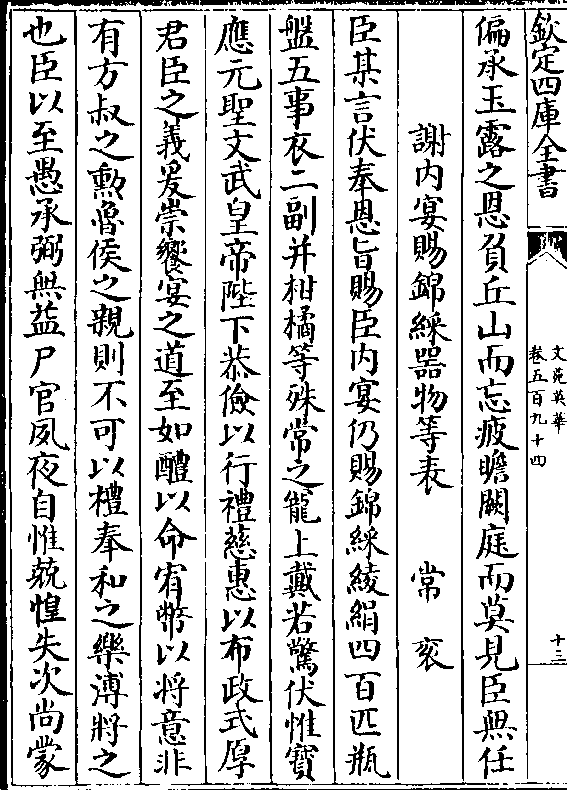 欽定四庫全書
文苑英華
卷五百九十四
十三
偏承玉露之恩負丘山而忘疲瞻闕庭而莫見臣無任
謝内宴賜錦綵器物等表 常袞
臣某言伏奉恩旨賜臣内宴仍賜錦綵綾絹四百匹瓶
盤五事衣二副并柑橘等殊常之寵上戴若驚伏惟寶
應元聖文武皇帝陛下恭儉以行禮慈惠以布政式厚
君臣之義爰崇饗宴之道至如醴以命宥幣以将意非
有方叔之勲魯侯之親則不可以禮奉和之樂溥將之
也臣以至愚承弼無益尸官夙夜自惟兢惶失次尚蒙